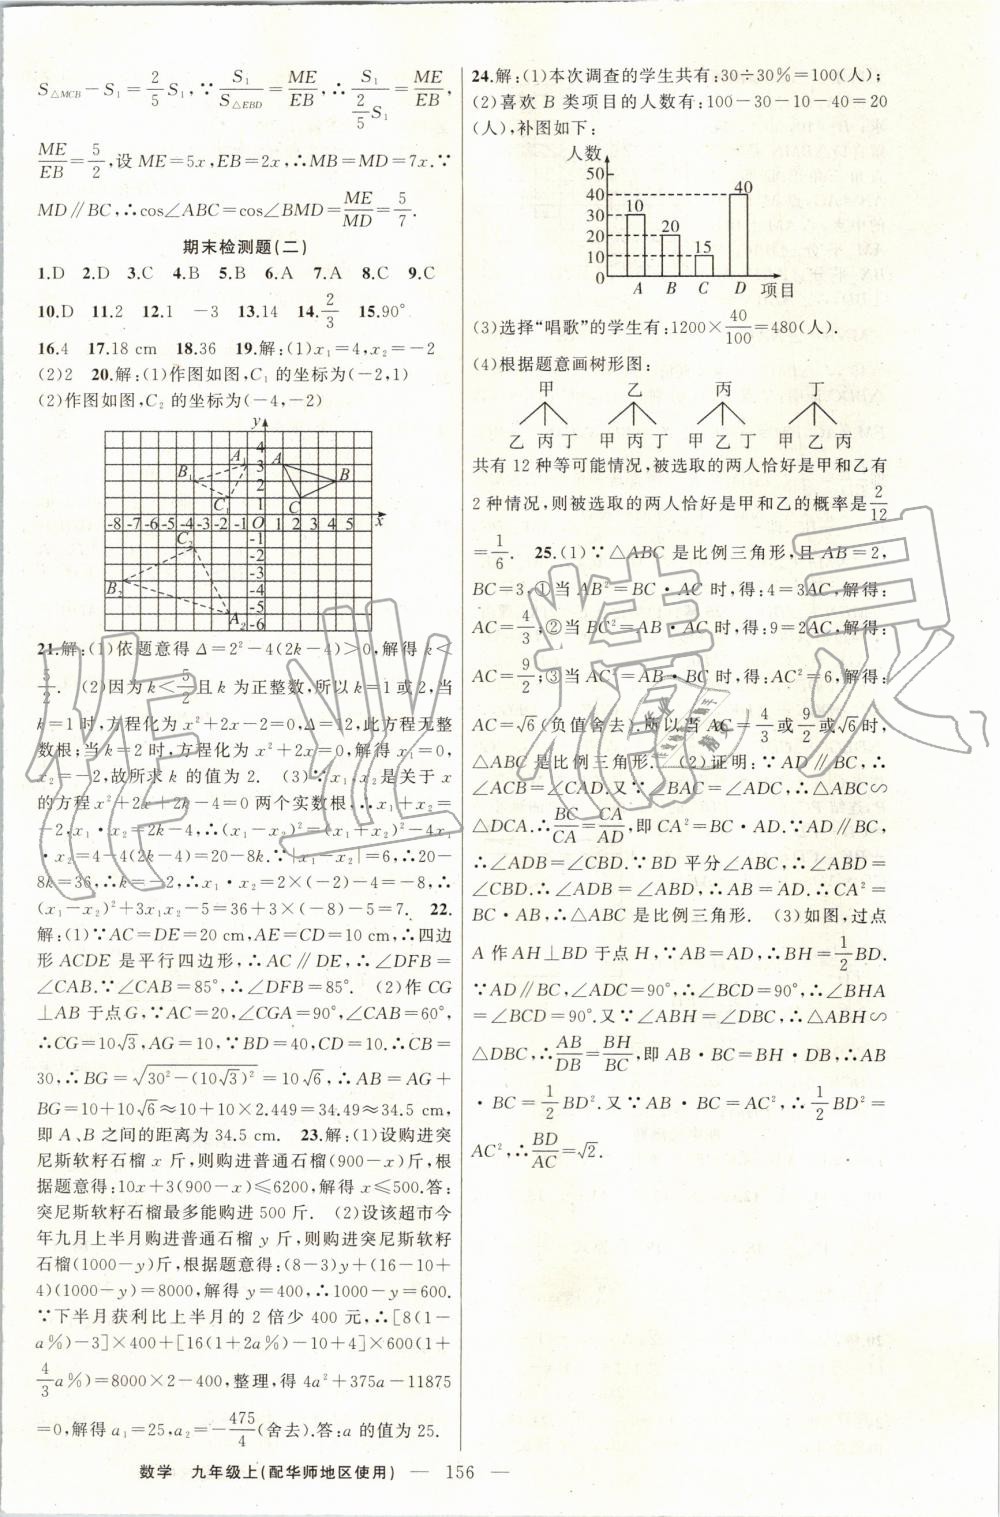 S△MCB－S₁＝2/5 S₁，∵S₁/S△EBD＝ME/EB，∴S₁/(2/5 S₁)＝ME/EB，
ME/EB＝5/2，设 ME＝5x，EB＝2x，∴MB＝MD＝7x．∵
MD∥BC，∴cos∠ABC＝cos∠BMD＝ME/MD＝5/7．
期末检测题（二）
1.D 2.D 3.C 4.B 5.B 6.A 7.A 8.C 9.C
10.D 11.2 12.1 －3 13.14 14.2/3 15.90°
16.4 17.18 cm 18.36 19.解：（1）x₁＝4，x₂＝－2
（2）2 20.解：（1）作图如图，C₁的坐标为（－2，1）
（2）作图如图，C₂的坐标为（－4，－2）
y
4
A₁ 3 A
B₁ 2 B
C₁ 1 C
-8 -7 -6 -5 -4 -3 -2 -1 O 1 2 3 4 5 x
-1
C₂ -2
-3
B₂ -4
-5
A₂ -6
21.解：（1）依题意得 Δ＝2²－4（2k－4）＞0，解得 k＜
5/2．（2）因为 k＜5/2且 k 为正整数，所以 k＝1 或 2，当
k＝1 时，方程化为 x²＋2x－2＝0，Δ＝12，此方程无整
数根；当 k＝2 时，方程化为 x²＋2x＝0，解得 x₁＝0，
x₂＝－2，故所求 k 的值为 2．（3）∵x₁，x₂是关于 x
的方程 x²＋2x＋2k－4＝0 两个实数根，∴x₁＋x₂＝
－2，x₁·x₂＝2k－4，∴（x₁－x₂）²＝（x₁＋x₂）²－4x₁
·x₂＝4－4（2k－4）＝20－8k．∵|x₁－x₂|＝6，∴20－
8k＝36，∴k＝－2，∴x₁·x₂＝2×（－2）－4＝－8，∴
（x₁－x₂）²＋3x₁x₂－5＝36＋3×（－8）－5＝7． 22.
解：（1）∵AC＝DE＝20 cm，AE＝CD＝10 cm，∴四边
形 ACDE 是平行四边形，∴AC∥DE，∴∠DFB＝
∠CAB．∵∠CAB＝85°，∴∠DFB＝85°．（2）作 CG
⊥AB 于点 G，∵AC＝20，∠CGA＝90°，∠CAB＝60°，
∴CG＝10√3，AG＝10，∵BD＝40，CD＝10，∴CB＝
30，∴BG＝√(30²－(10√3)²)＝10√6，∴AB＝AG＋
BG＝10＋10√6≈10＋10×2.449＝34.49≈34.5 cm，
即 A、B 之间的距离为 34.5 cm． 23.解：（1）设购进突
尼斯软籽石榴 x 斤，则购进普通石榴（900－x）斤，根
据题意得：10x＋3（900－x）≤6200，解得 x≤500．答：
突尼斯软籽石榴最多能购进 500 斤．（2）设该超市今
年九月上半月购进普通石榴 y 斤，则购进突尼斯软籽
石榴（1000－y）斤，根据题意得：（8－3）y＋（16－10＋
4）（1000－y）＝8000，解得 y＝400，∴1000－y＝600．
∵下半月获利比上半月的 2 倍少 400 元，∴[8（1－
a％）－3]×400＋[16（1＋2a％）－10＋4]×600（1＋
4/3 a％）＝8000×2－400，整理，得 4a²＋375a－11875
＝0，解得 a₁＝25，a₂＝－475/4（舍去）．答：a 的值为 25．
24.解：（1）本次调查的学生共有：30÷30％＝100（人）；
（2）喜欢 B 类项目的人数有：100－30－10－40＝20
（人），补图如下：
人数
50
40 40
30 10
20 20
10 15
0
A B C D 项目
（3）选择“唱歌”的学生有：1200×40/100＝480（人）．
（4）根据题意画树形图：
甲 乙 丙 丁
乙 丙 丁 甲 丙 丁 甲 乙 丁 甲 乙 丙
共有 12 种等可能情况，被选取的两人恰好是甲和乙有
2 种情况，则被选取的两人恰好是甲和乙的概率是2/12
＝1/6． 25.（1）∵△ABC 是比例三角形，且 AB＝2，
BC＝3，①当 AB²＝BC·AC 时，得：4＝3AC，解得：
AC＝4/3；②当 BC²＝AB·AC 时，得：9＝2AC，解得：
AC＝9/2；③当 AC²＝AB·BC 时，得：AC²＝6，解得：
AC＝√6（负值舍去）．所以当 AC＝4/3或9/2或√6时，
△ABC 是比例三角形．（2）证明：∵AD∥BC，∴
∠ACB＝∠CAD．又∵∠BAC＝∠ADC，∴△ABC∽
△DCA．∴BC/CA＝CA/AD，即 CA²＝BC·AD．∵AD∥BC，
∴∠ADB＝∠CBD．∵BD 平分∠ABC，∴∠ABD＝
∠CBD，∴∠ADB＝∠ABD，∴AB＝AD．∴CA²＝
BC·AB，∴△ABC 是比例三角形．（3）如图，过点
A 作 AH⊥BD 于点 H，∵AB＝AD，∴BH＝1/2 BD．
∵AD∥BC，∠ADC＝90°，∴∠BCD＝90°，∴∠BHA
＝∠BCD＝90°．又∵∠ABH＝∠DBC，∴△ABH∽
△DBC，∴AB/DB＝BH/BC，即 AB·BC＝BH·DB，∴AB
·BC＝1/2 BD²．又∵AB·BC＝AC²，∴1/2 BD²＝
AC²，∴BD/AC＝√2．
数学 九年级上（配华师地区使用） — 156 —
作业精灵